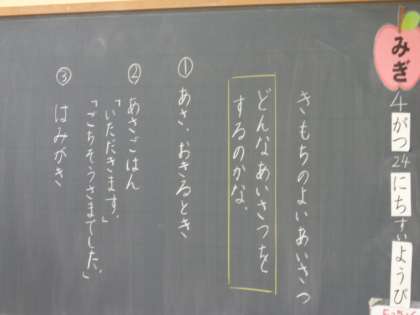 みぎ
4がつ24にちすいようび
きもちのよいあいさつ
どんなあいさつを
するのかな。
①あさ、おきるとき
②あさごはん
「いただきます。」
「ごちそうさまでした。」
③はみがき